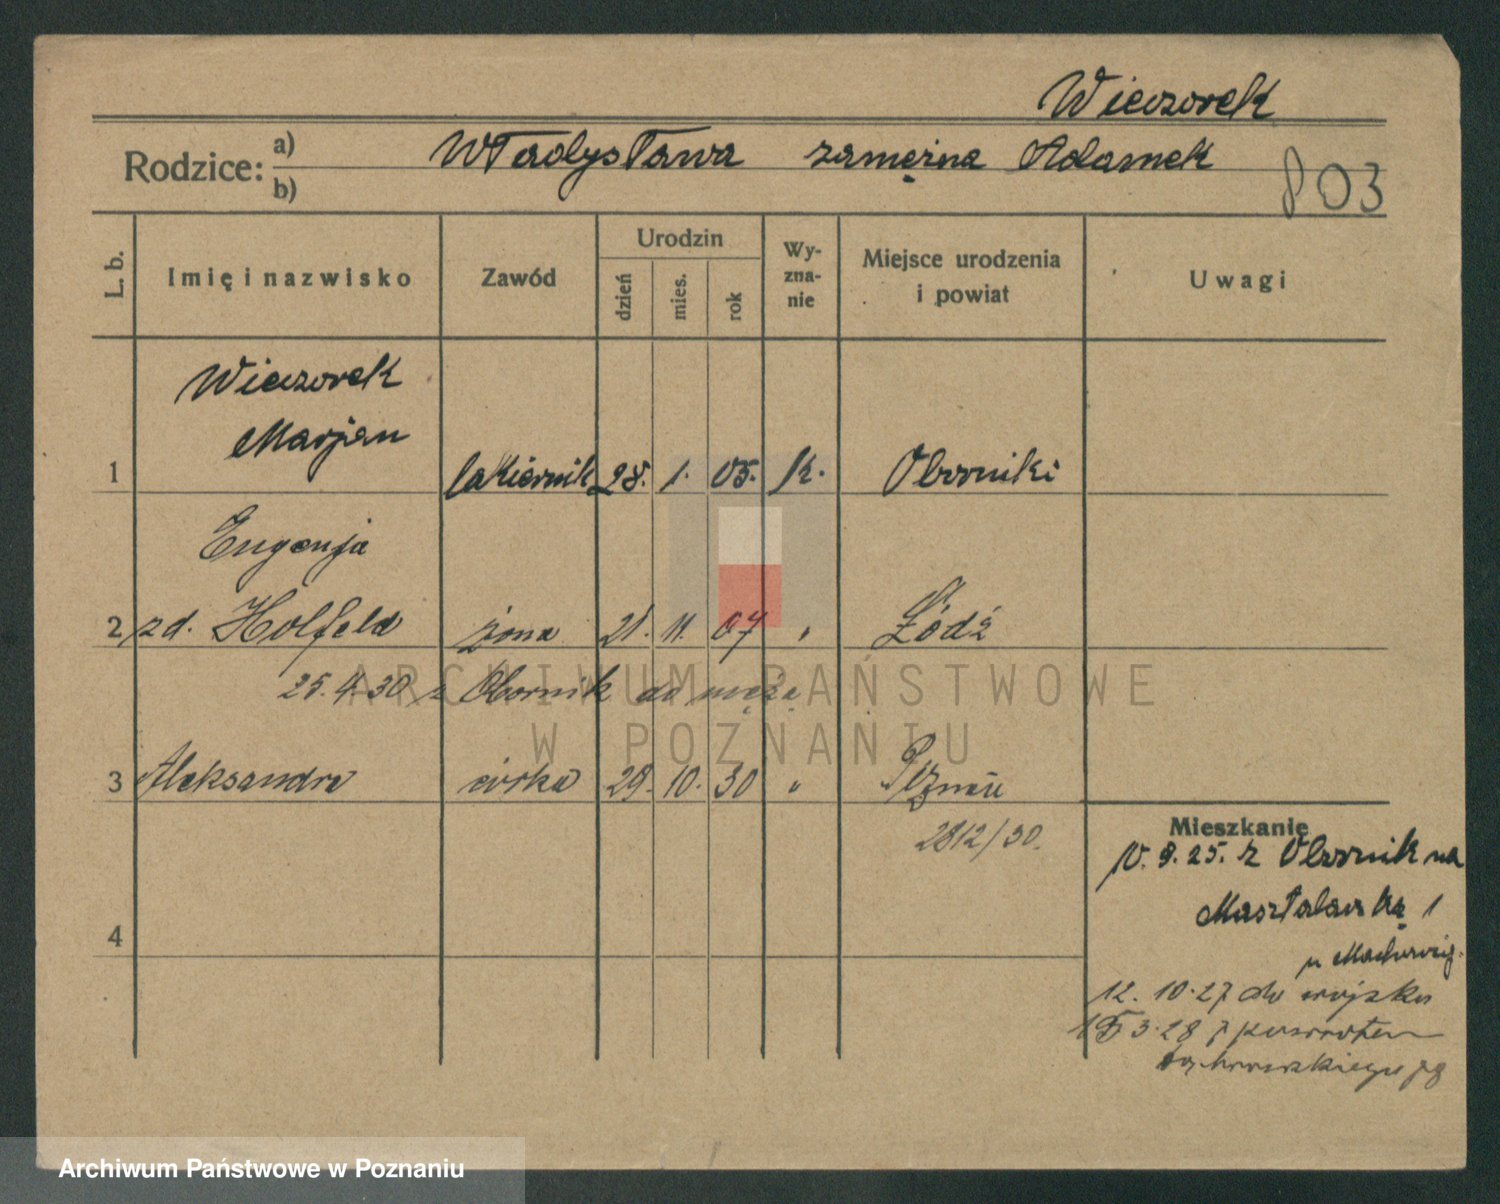 Wieczorek
Rodzice: a) Władysława zamężna Adamek
b)
803
L. b.
Imię i nazwisko
Zawód
Urodzin
dzień
mies.
rok
Wy-
zna-
nie
Miejsce urodzenia
i powiat
Uwagi
Wieczorek
Marjan
1 lakiernik 28. 1. 05. k. Oborniki
Eugenja
2 zd. Holfeld żona 21. 11. 07 " Łódź
25. 4. 30 z Obornik do męża
3 Aleksandra córka 29. 10. 30 " Poznań
2812/30.
4
Mieszkanie
10. 9. 25. z Obornik na
Masztalarską 1
u
12. 10. 27 do wojska
3. 28 z powrotem
ARCHIWUM PAŃSTWOWE
W POZNANIU
Archiwum Państwowe w Poznaniu